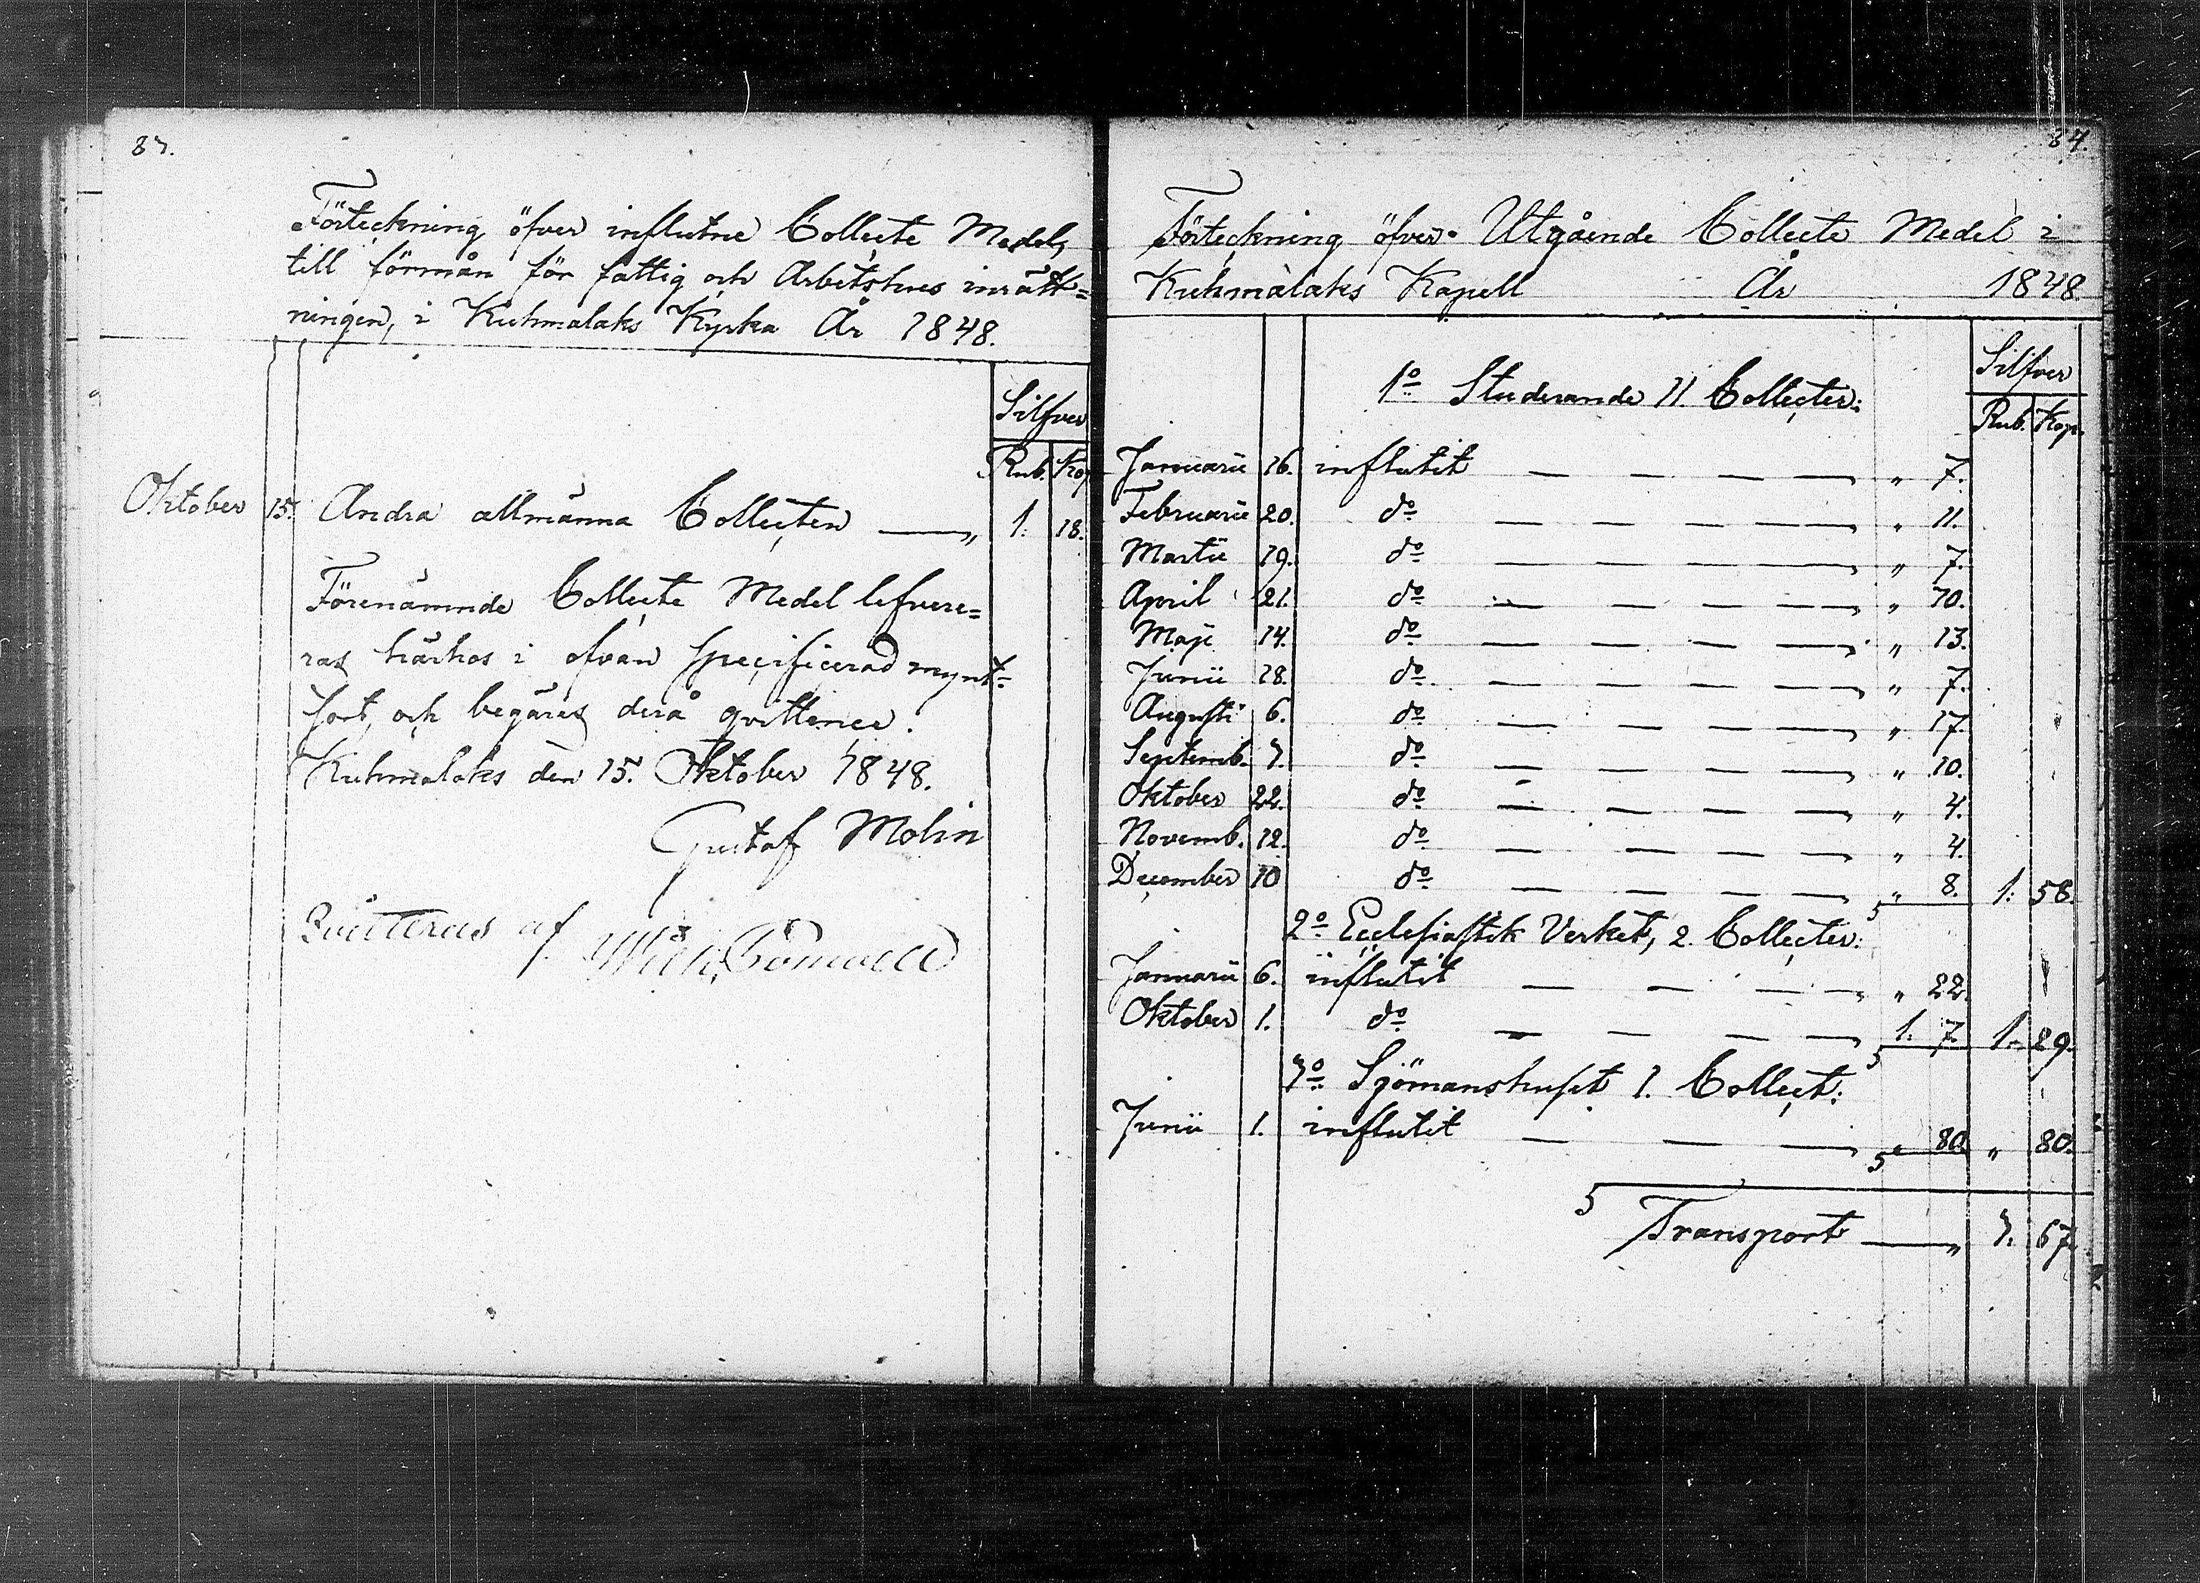 83.
Förteckning öfver influtne Collecte Medel,
till förmån för fattig och Arbetshus inrätt=
ningen, i Kuhmalaks Kyrka År 1848.
Silfver
Rub. Kop
Oktober 15. Andra allmänna Collecten — „ 1: 18.
Förenämnde Collecte Medel lefvere=
ras härhos i ofvan specificerad mynt=
sort, och begäres derå qvittence.
Kuhmalaks den 15. Oktober 1848.
Gustaf Molin
Qvitteras af
84.
Förteckning öfver Utgående Collecte Medel i
Kuhmalaks Kapell År 1848.
Silfver
Rub. Kop.
1o Studerande 11. Collecter:
Januarii 16. influtit — — — — „ 7.
Februarii 20. do — — — — „ 11.
Martii 19. do — — — — „ 7.
April 21. do — — — — „ 70.
Maji 14. do — — — — „ 13.
Junii 18. do — — — — „ 7.
Augusti 6. do — — — — „ 17.
Septemb. 3. do — — — — „ 10.
Oktober 22. do — — — — „ 4.
Novemb. 12. do — — — — „ 4.
December 10 do — — — — „ 8. 1: 58.
2o Ecclesiastik Verket, 2. Collecter:
Januarii 6. influtit — — — — „ 22.
Oktober 1. do — — — — 1: 7. 1: 29.
3o Sjömanshuset 1. Collect:
Junii 1. influtit — — — „ 80. „ 80.
Transport — „ 3. 67.